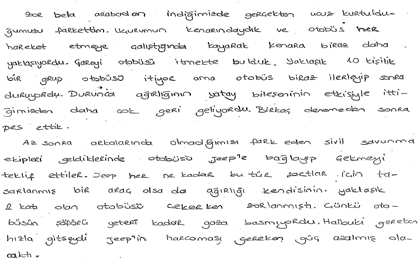 Zor bela arabadan indiğimizde gerçekten ucuz kurtuldu-
ğumuzu farkettim. Uçurumun kenarındaydık ve otobüs her
hareket etmeye çalıştığında kayarak kenara biraz daha
yaklaşıyordu. Çareyi otobüsü itmekte bulduk. Yaklaşık 10 kişilik
bir grup otobüsü itiyor ama otobüs biraz ilerleyip sonra
duruyordu. Durunca ağırlığının yatay bileşeninin etkisiyle itti-
ğimizden daha çok geri geliyordu. Birkaç denemeden sonra
pes ettik.
Az sonra arkalarında olmadığımızı fark eden sivil savunma
ekipleri geldiklerinde otobüsü jeep'e bağlayıp çekmeyi
teklif ettiler. Jeep her ne kadar bu tür şartlar için ta-
sarlanmış bir araç olsa da ağırlığı kendisinin yaklaşık
2 katı olan otobüsü çekerken zorlanmıştı. Çünkü oto-
büsün şöförü yeteri kadar gaza basmıyordu. Halbuki gereken
hızla gitseydi jeep'in harcaması gereken güç azalmış ola-
caktı.